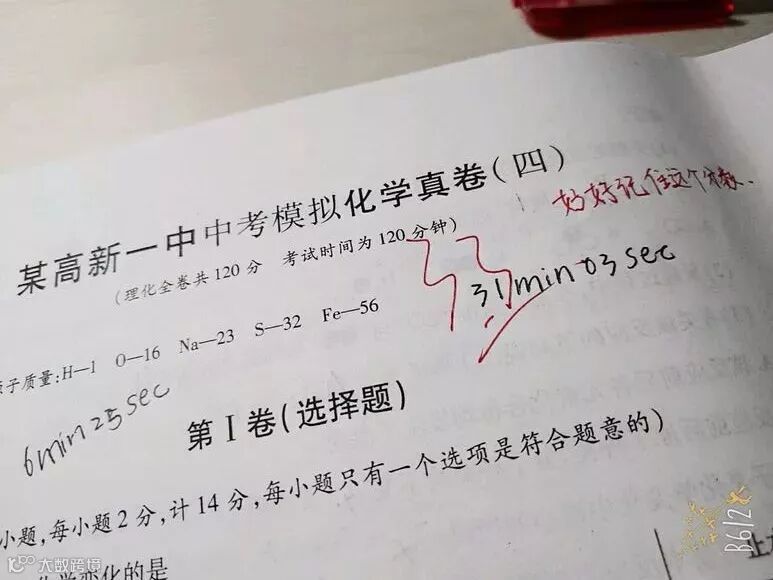 某高新一中中考模拟化学真卷(四)
好好记住这个分数.
(理化全卷共120分 考试时间为120分钟)
31min 03sec
原子质量:H—1 O—16 Na—23 S—32 Fe—56
6min25sec
第Ⅰ卷(选择题)
小题,每小题2分,计14分,每小题只有一个选项是符合题意的)
化学变化的是
B612
大数跨境